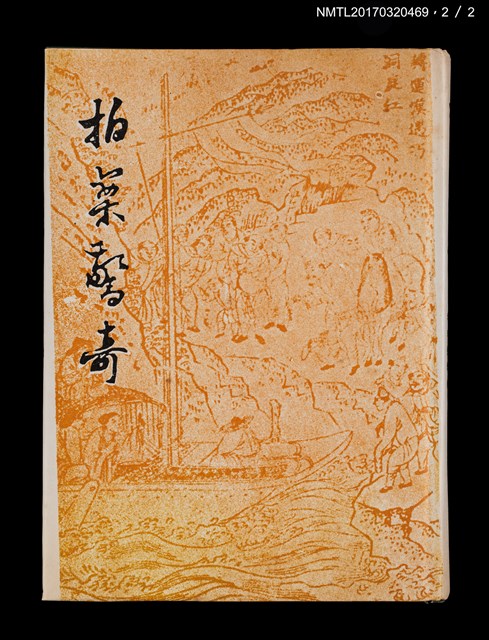 NMTL20170320469・2／2
拍案驚奇
轉運漢遇巧
洞庭紅